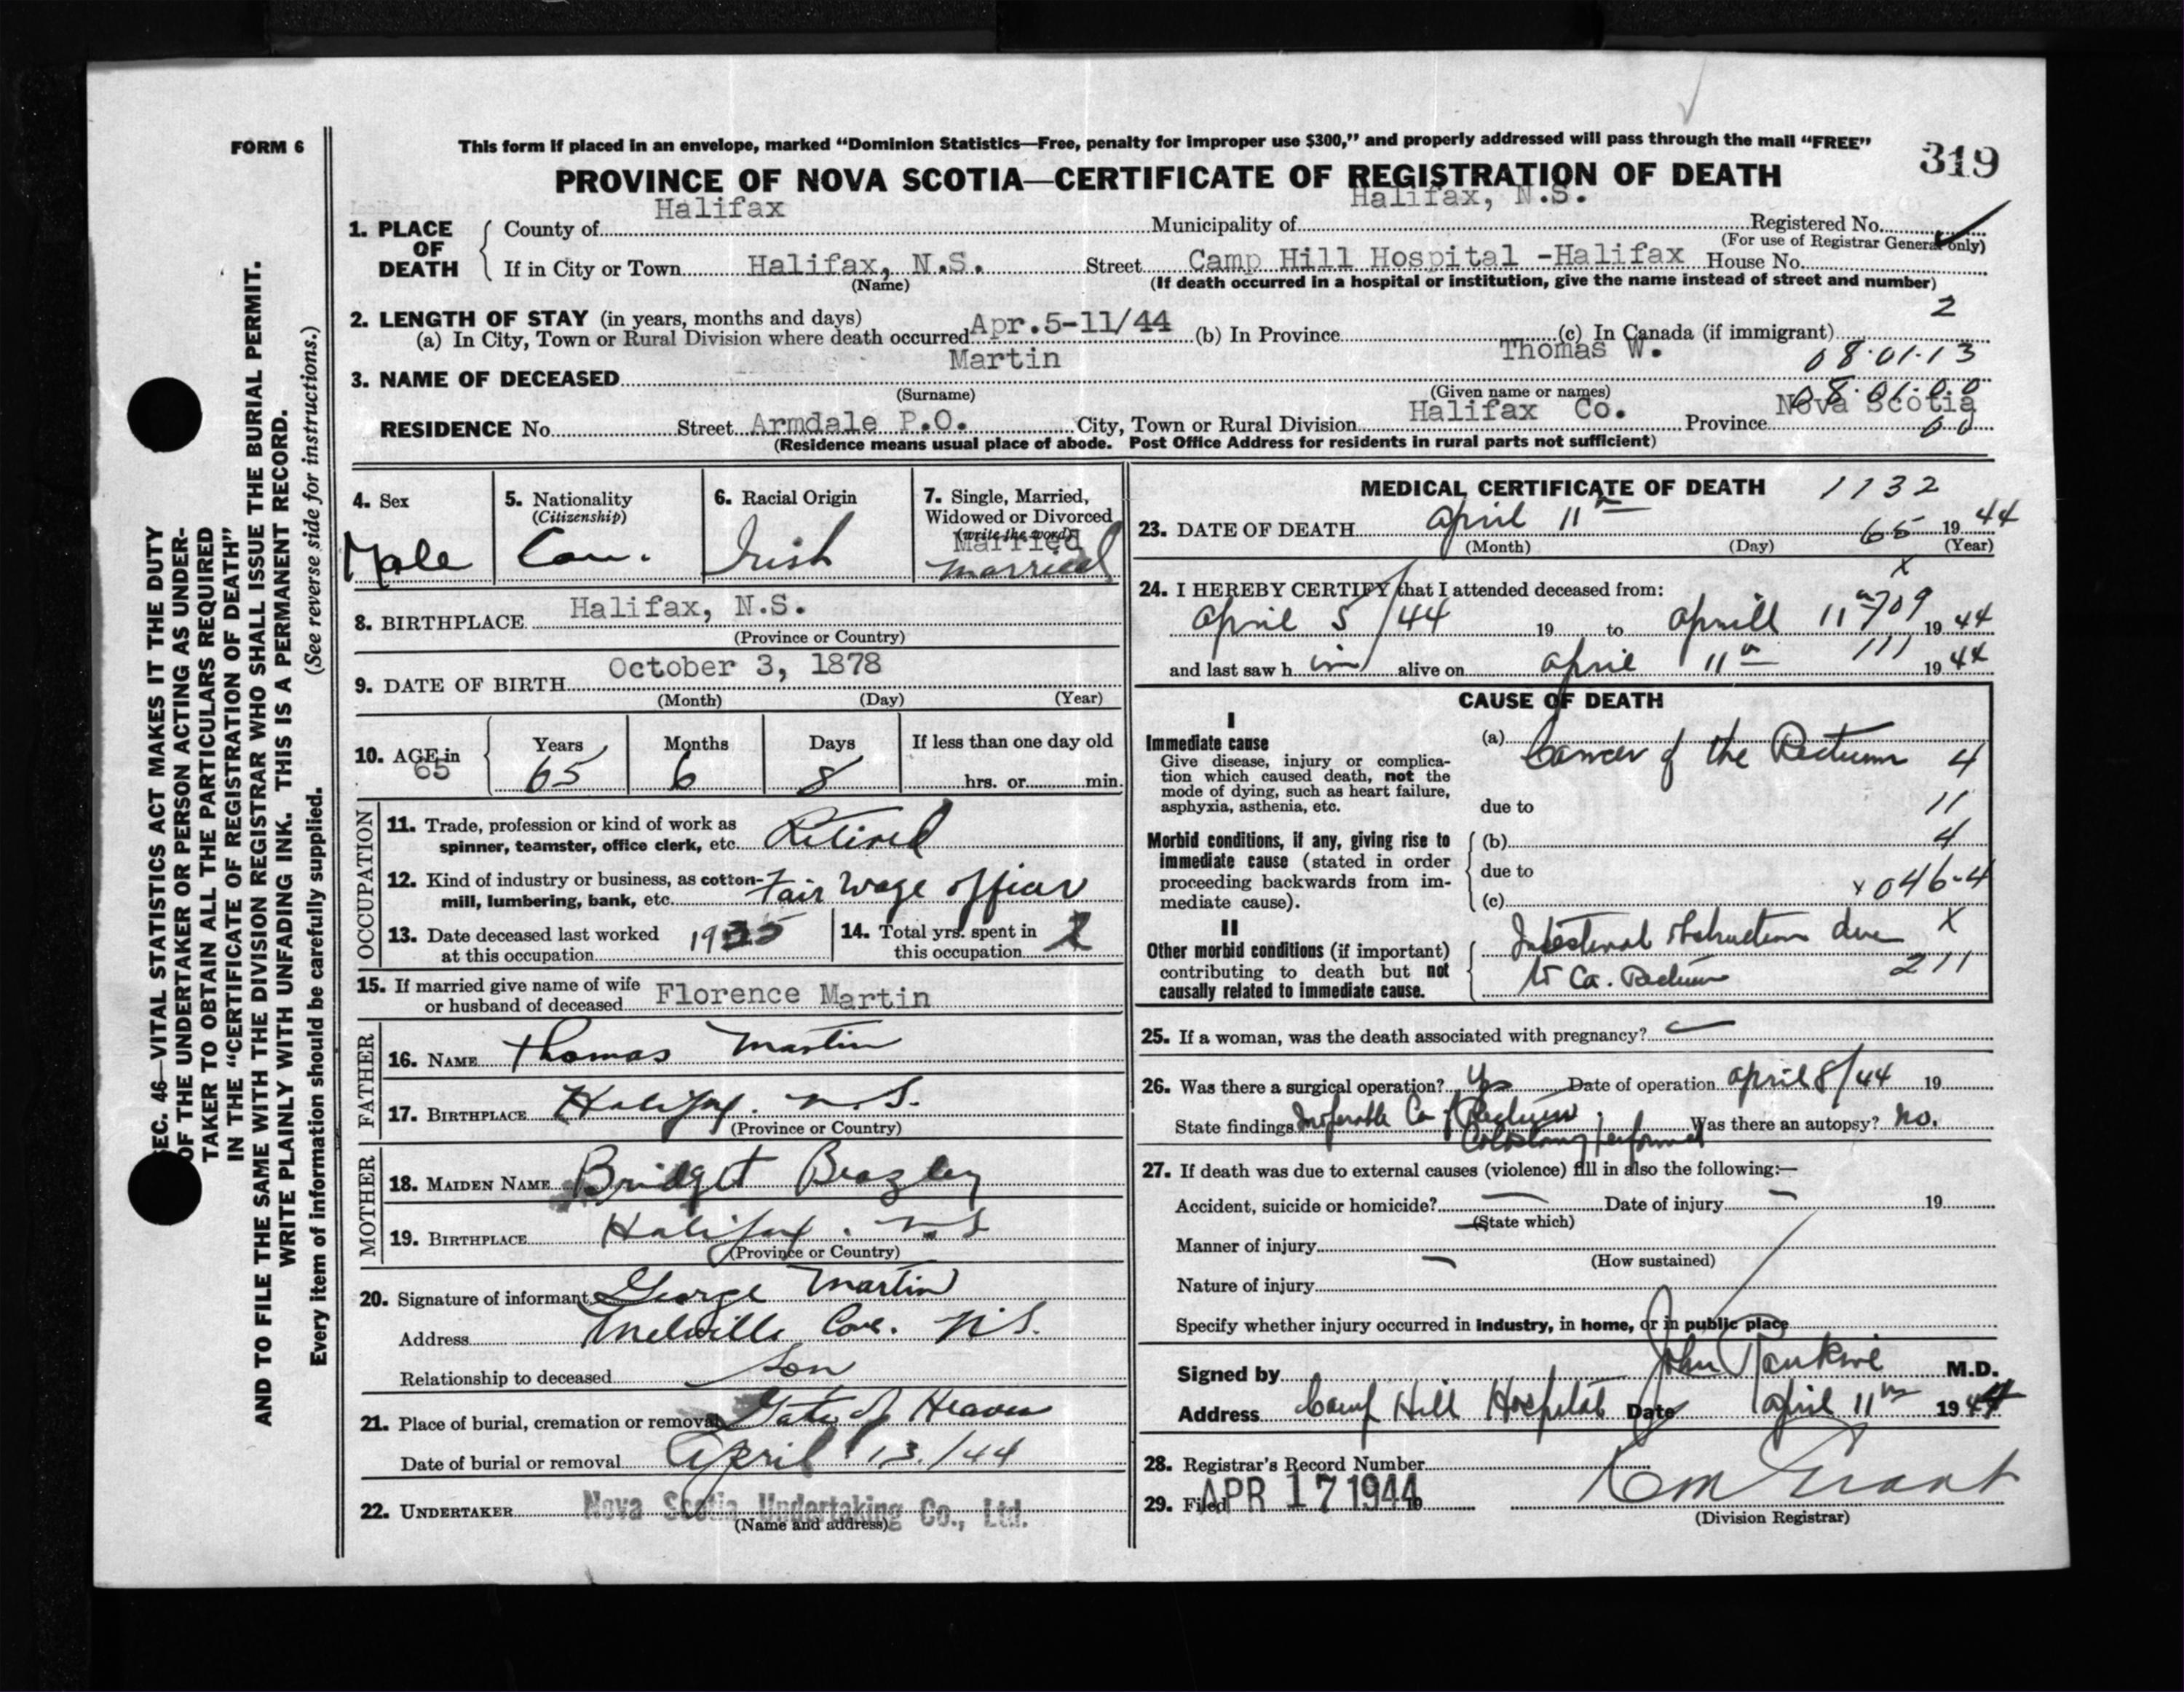 FORM 6
This form if placed in an envelope, marked “Dominion Statistics—Free, penalty for improper use $300,” and properly addressed will pass through the mail “FREE”
319
PROVINCE OF NOVA SCOTIA—CERTIFICATE OF REGISTRATION OF DEATH
1. PLACE OF DEATH
County of Halifax Municipality of Halifax, N.S. Registered No.
(For use of Registrar General only)
If in City or Town Halifax, N.S. Street Camp Hill Hospital -Halifax House No.
(Name) (If death occurred in a hospital or institution, give the name instead of street and number)
2. LENGTH OF STAY (in years, months and days) 2
(a) In City, Town or Rural Division where death occurred Apr.5-11/44 (b) In Province (c) In Canada (if immigrant)
08.01.13
3. NAME OF DECEASED Martin Thomas W.
(Surname) (Given name or names) 08.01.00
RESIDENCE No. Street Armdale P.O. City, Town or Rural Division Halifax Co. Province Nova Scotia
00
(Residence means usual place of abode. Post Office Address for residents in rural parts not sufficient)
4. Sex Male
5. Nationality (Citizenship) Can.
6. Racial Origin Irish
7. Single, Married, Widowed or Divorced (write the word) Married
married
8. BIRTHPLACE Halifax, N.S.
(Province or Country)
9. DATE OF BIRTH October 3, 1878
(Month) (Day) (Year)
10. AGE in 65 Years 65 Months 6 Days 8 If less than one day old
hrs. or min.
OCCUPATION
11. Trade, profession or kind of work as
spinner, teamster, office clerk, etc. Retired
12. Kind of industry or business, as cotton-
mill, lumbering, bank, etc. Fair Wage officer
13. Date deceased last worked
at this occupation 1935
14. Total yrs. spent in
this occupation
15. If married give name of wife
or husband of deceased Florence Martin
FATHER
16. NAME Thomas Martin
17. BIRTHPLACE Halifax. N.S.
(Province or Country)
MOTHER
18. MAIDEN NAME Bridget Beazley
19. BIRTHPLACE Halifax. N.S
(Province or Country)
20. Signature of informant George Martin
Address Melville Cove. N.S.
Relationship to deceased Son
21. Place of burial, cremation or removal Gate of Heaven
Date of burial or removal April 13./44
22. UNDERTAKER Nova Scotia Undertaking Co., Ltd.
(Name and address)
MEDICAL CERTIFICATE OF DEATH 1132
23. DATE OF DEATH April 11th 65 1944
(Month) (Day) (Year)
24. I HEREBY CERTIFY that I attended deceased from: x
April 5/44 19 to Aprill 11th 709 1944
and last saw h im alive on April 11th 111 1944
CAUSE OF DEATH
I
Immediate cause
Give disease, injury or complica-
tion which caused death, not the
mode of dying, such as heart failure,
asphyxia, asthenia, etc.
(a) Cancer of the Rectum 4
due to 11
Morbid conditions, if any, giving rise to
immediate cause (stated in order
proceeding backwards from im-
mediate cause).
(b) 4
due to
(c) x046-4
II
Other morbid conditions (if important)
contributing to death but not
causally related to immediate cause.
Intestinal obstruction due X
to Ca. Rectum 211
25. If a woman, was the death associated with pregnancy?
26. Was there a surgical operation? Yes Date of operation April 8/44 19
State findings Inoperable Ca of Rectum. Colostomy performed Was there an autopsy? No.
27. If death was due to external causes (violence) fill in also the following:—
Accident, suicide or homicide? Date of injury 19
(State which)
Manner of injury
(How sustained)
Nature of injury
Specify whether injury occurred in industry, in home, or in public place
Signed by John Rankine M.D.
Address Camp Hill Hospital Date April 11th 1944
28. Registrar's Record Number
29. Filed APR 17 1944 19
(Division Registrar)
SEC. 46—VITAL STATISTICS ACT MAKES IT THE DUTY
OF THE UNDERTAKER OR PERSON ACTING AS UNDER-
TAKER TO OBTAIN ALL THE PARTICULARS REQUIRED
IN THE “CERTIFICATE OF REGISTRATION OF DEATH”
AND TO FILE THE SAME WITH THE DIVISION REGISTRAR WHO SHALL ISSUE THE BURIAL PERMIT.
WRITE PLAINLY WITH UNFADING INK. THIS IS A PERMANENT RECORD.
Every item of information should be carefully supplied. (See reverse side for instructions.)